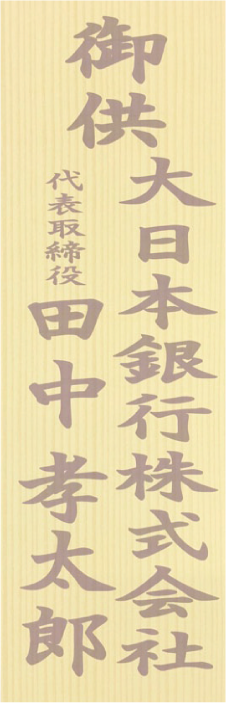 御供
大日本銀行株式会社
代表取締役 田中孝太郎